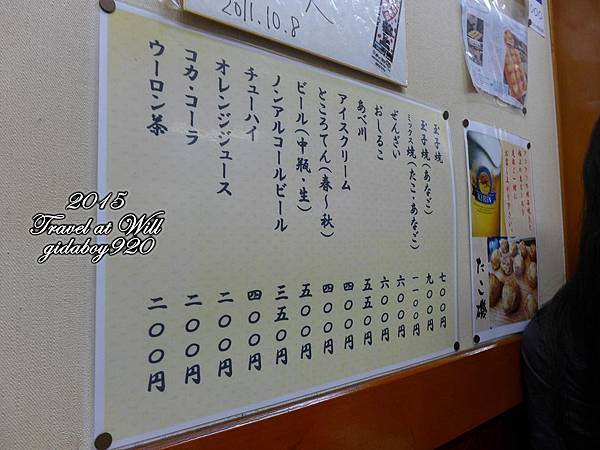 2011.10.8
玉子焼 七〇〇円
玉子焼(あなご) 九〇〇円
ミックス焼(たこ・あなご) 一一〇〇円
ぜんざい 六〇〇円
おしるこ 六〇〇円
あべ川 五五〇円
アイスクリーム 四〇〇円
ところてん(春〜秋) 四〇〇円
ビール(中瓶・生) 五〇〇円
ノンアルコールビール 三五〇円
チューハイ 四〇〇円
オレンジジュース 二〇〇円
コカ・コーラ 二〇〇円
ウーロン茶 二〇〇円
KIRIN
たこ磯
2015
Travel at Will
gidaboy920